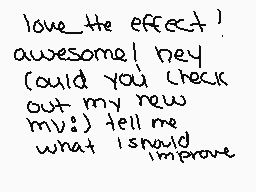 love the effect!
awesome! hey
could you check
out my new
mv:) tell me
what i should
improve